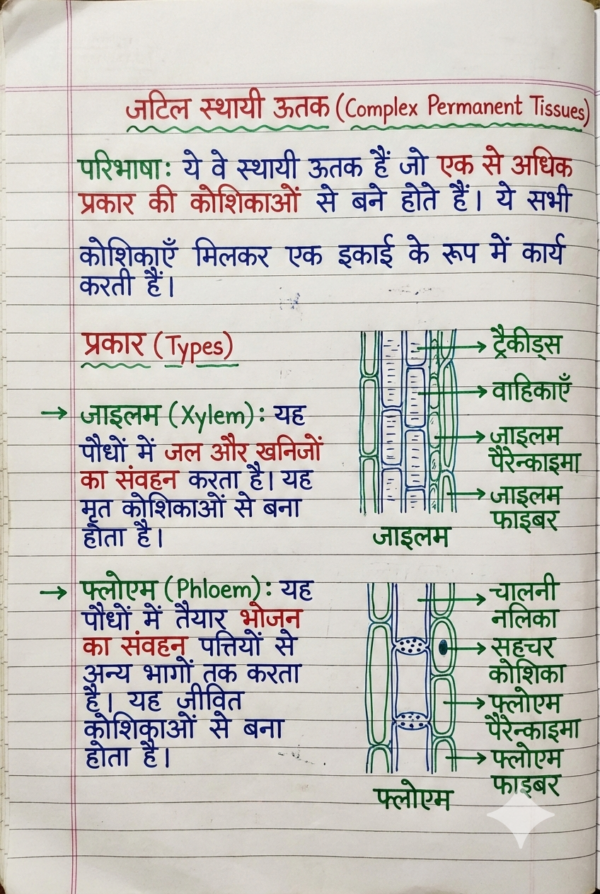 जटिल स्थायी ऊतक (Complex Permanent Tissues)
परिभाषा: ये वे स्थायी ऊतक हैं जो एक से अधिक
प्रकार की कोशिकाओं से बने होते हैं। ये सभी
कोशिकाएँ मिलकर एक इकाई के रूप में कार्य
करती हैं।
प्रकार (Types)
→ जाइलम (Xylem): यह
पौधों में जल और खनिजों
का संवहन करता है। यह
मृत कोशिकाओं से बना
होता है।
ट्रैकीड्स
वाहिकाएँ
जाइलम
पैरेन्काइमा
जाइलम
फाइबर
जाइलम
→ फ्लोएम (Phloem): यह
पौधों में तैयार भोजन
का संवहन पत्तियों से
अन्य भागों तक करता
है। यह जीवित
कोशिकाओं से बना
होता है।
चालनी
नलिका
सहचर
कोशिका
फ्लोएम
पैरेन्काइमा
फ्लोएम
फाइबर
फ्लोएम